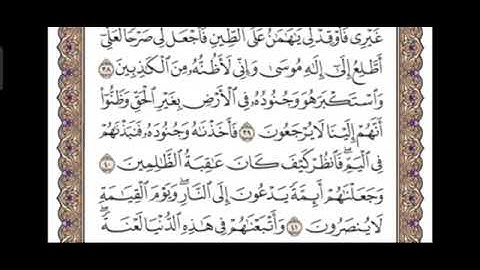 غَيْرِى فَأَوْقِدْ لِى يَٰهَٰمَٰنُ عَلَى ٱلطِّينِ فَٱجْعَل لِّى صَرْحًا لَّعَلِّىٓ
أَطَّلِعُ إِلَىٰٓ إِلَٰهِ مُوسَىٰ وَإِنِّى لَأَظُنُّهُۥ مِنَ ٱلْكَٰذِبِينَ ٣٨
وَٱسْتَكْبَرَ هُوَ وَجُنُودُهُۥ فِى ٱلْأَرْضِ بِغَيْرِ ٱلْحَقِّ وَظَنُّوٓا۟
أَنَّهُمْ إِلَيْنَا لَا يُرْجَعُونَ ٣٩ فَأَخَذْنَٰهُ وَجُنُودَهُۥ فَنَبَذْنَٰهُمْ
فِى ٱلْيَمِّ ۖ فَٱنظُرْ كَيْفَ كَانَ عَٰقِبَةُ ٱلظَّٰلِمِينَ ٤٠
وَجَعَلْنَٰهُمْ أَئِمَّةً يَدْعُونَ إِلَى ٱلنَّارِ ۖ وَيَوْمَ ٱلْقِيَٰمَةِ
لَا يُنصَرُونَ ٤١ وَأَتْبَعْنَٰهُمْ فِى هَٰذِهِ ٱلدُّنْيَا لَعْنَةً ۖ